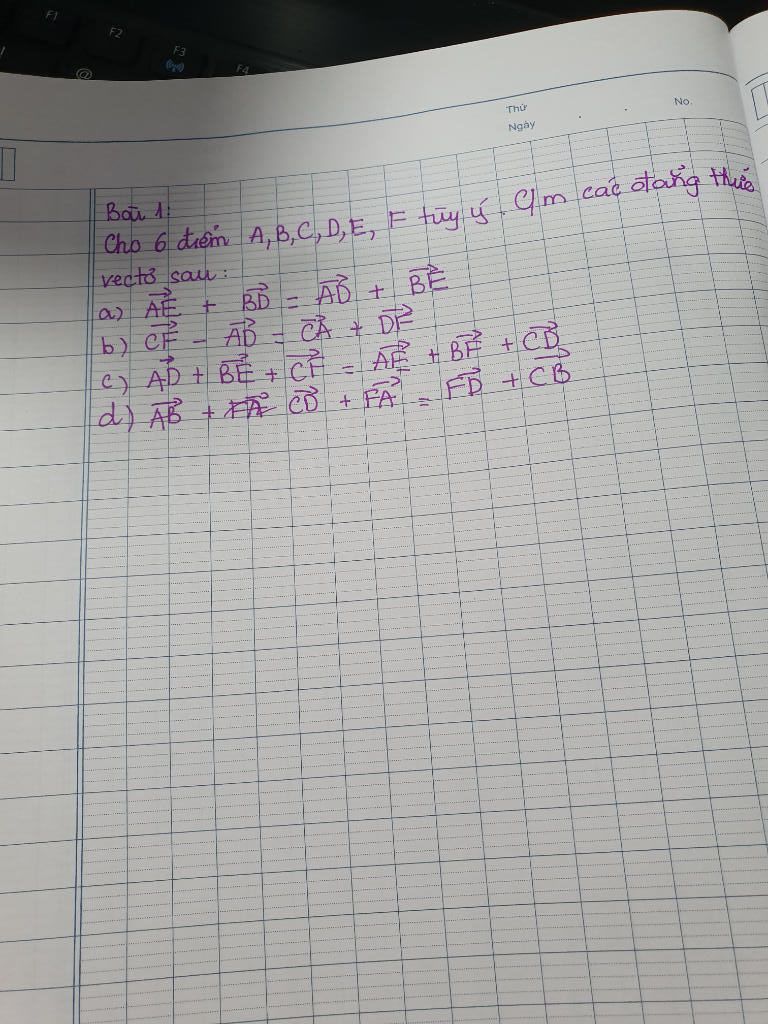 F1
F2
F3
F4
@
Thứ
Ngày
No.
Bài 1:
Cho 6 điểm A, B, C, D, E, F tùy ý. C/m các đẳng thức
vectơ sau:
a) AE + BD = AD + BE
b) CF - AD = CA + DF
c) AD + BE + CF = AE + BF + CD
d) AB + FA CD + FA = FD + CB